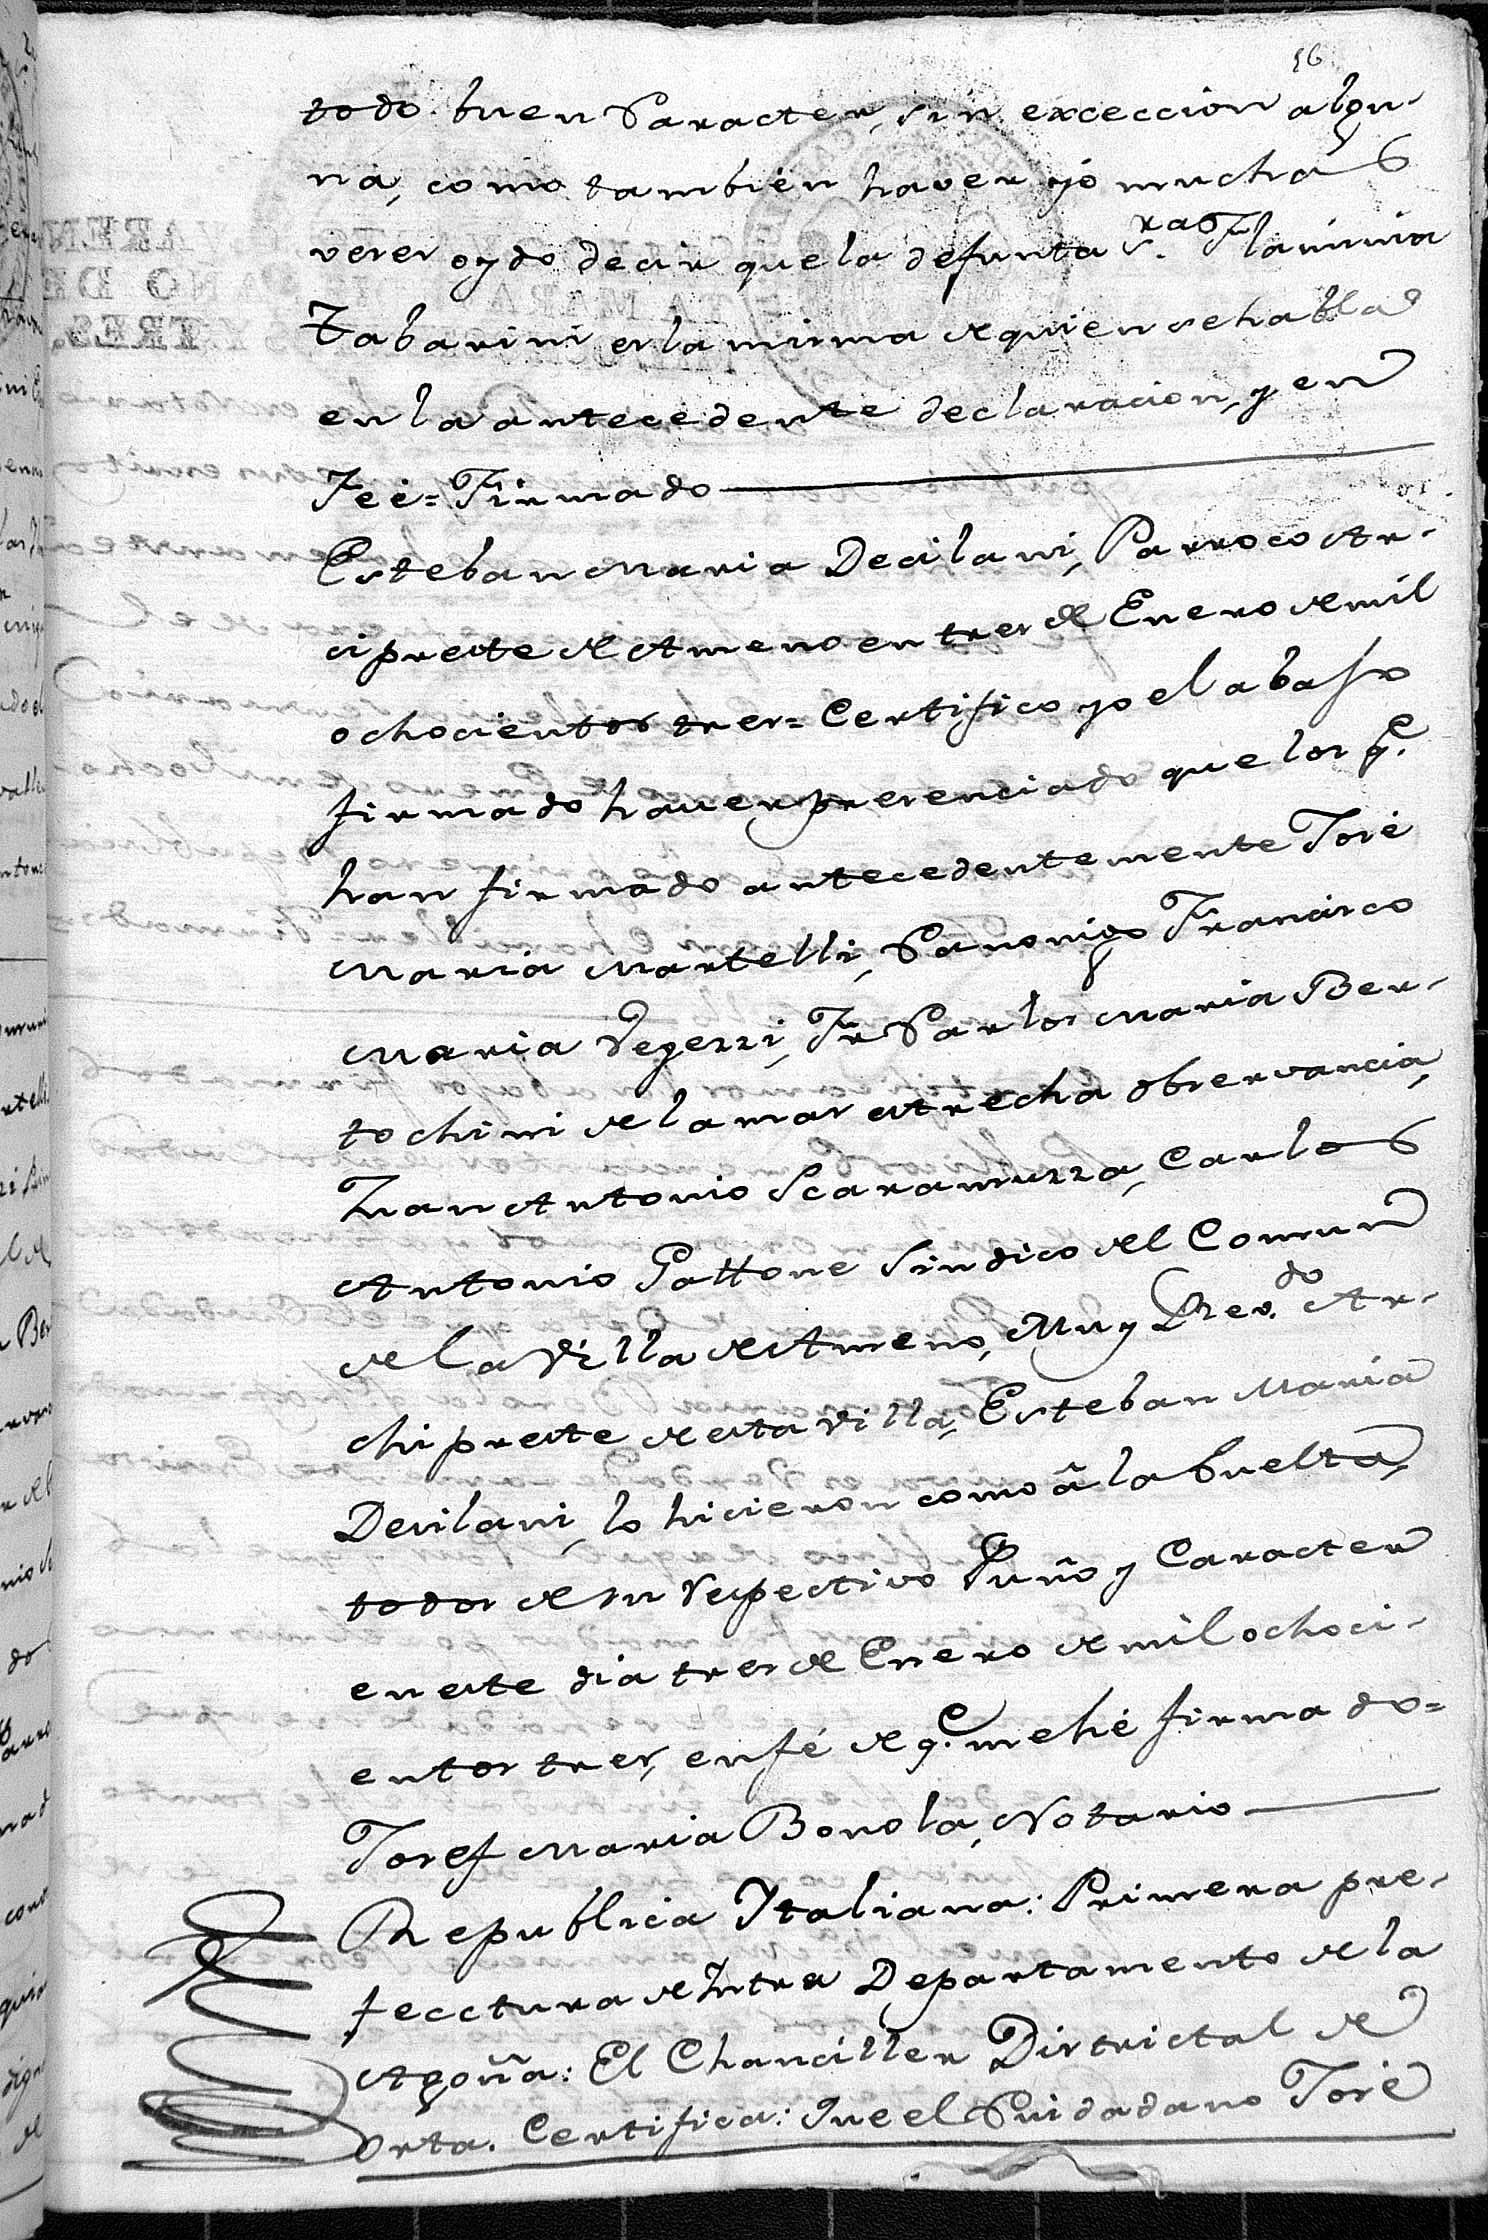 56
todo buen Caracter, sin excecccion algu-
na, como tambien haver yo muchas
veses oydo decir que la defunta S.ra Flaminia
Tabarini es la misma de quien se habla
en la antecedente declaracion, y en
Feé = Firmado
Esteban Maria Decilani, Parroco Ar-
cipreste de Ameno en tres de Enero de mil
ochocientos tres = Certifico yo el abaso
firmado haver presenciado que los q.e
han firmado antecedentemente José
Maria Martelli, Canonigo Francisco
Maria Vegezzi, Fr Carlos Maria Ber-
tochini de la mas estrecha observancia,
Juan Antonio Scaramuzza, Carlos
Antonio Gattone Sindico del Comun
de la Villa de Ameno, Muy Rev.do Ar-
chipreste de esta villa, Esteban Maria
Decilani, lo hicieron como â la buelta,
todos de su respectivo Puño y Caracter
en este dia tres de Enero de mil ochoci-
entos tres, en fé de q.e me hé firmado =
Josef Maria Bonola, Notario
Republica Italiana: Primera pre-
fecctura de Intra Departamento de la
Agoña: El Chanciller Districtal de
Orta. Certifica: Que el Cuidadano José